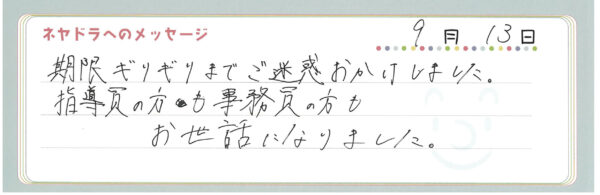 ネヤドラへのメッセージ 9月13日
期限ギリギリまでご迷惑おかけしました。
指導員の方も事務員の方も
お世話になりました。